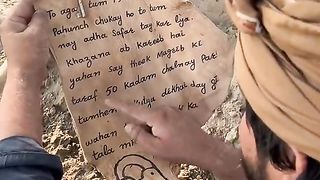 To agar tum
Pahunch chukay ho to tum
nay adha Safar tay kar lya.
Khazana ab kareeb hai
yahan say theek Magreb KI
taraf 50 kadam chalnay Par
tumhen dikhai day gi
wahan ka
tala